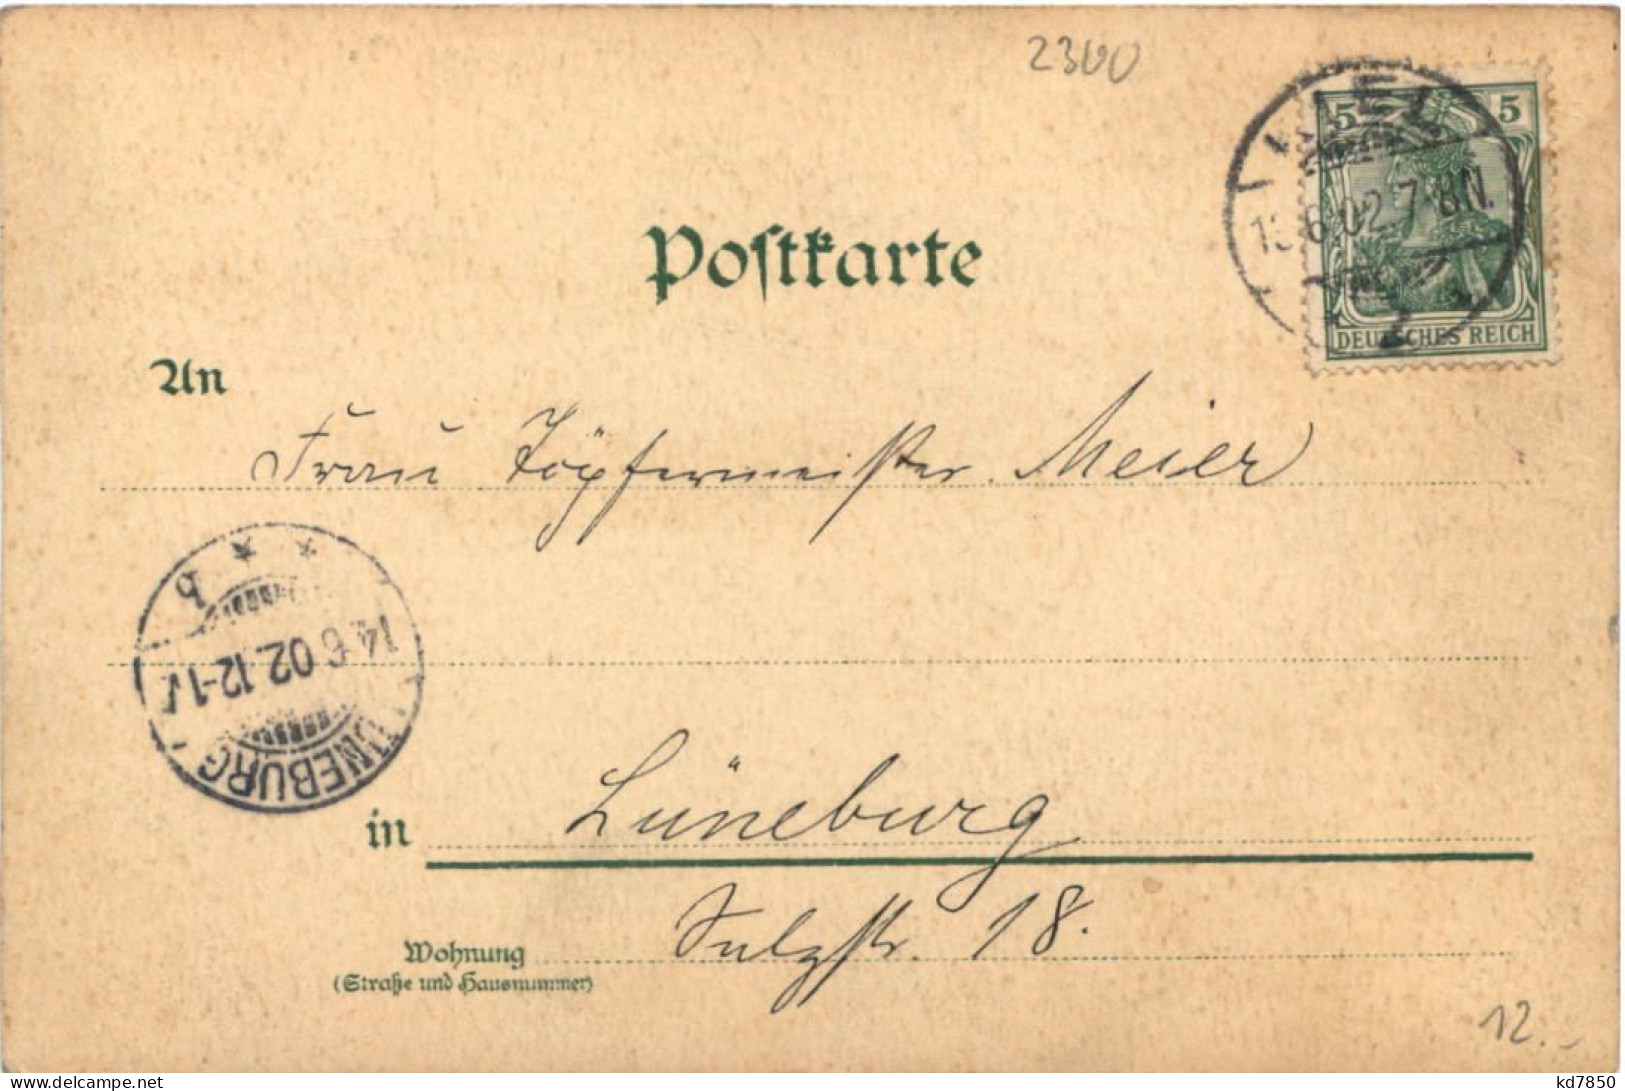 2300
5 5
13.6.02.7-8N.
DEUTSCHES REICH
Postkarte
An
Frau Töpfermeister Meier
b
14.6.02.12-1
LÜNEBURG
in Lüneburg
Sülzstr. 18.
Wohnung
(Straße und Hausnummer)
12.-
kd7850